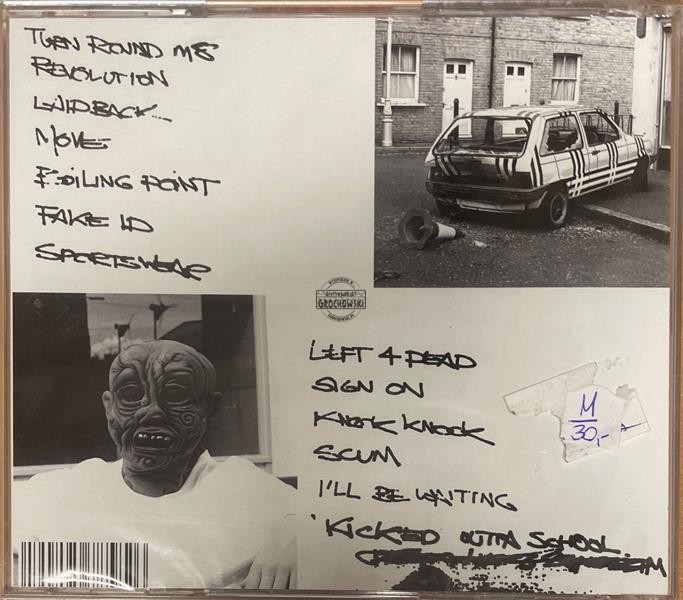 TURN ROUND ME
REVOLUTION
LAIDBACK...
MOVE
BOILING POINT
FAKE ID
SPORTSWEAR
GROCHOWSKI
LEFT 4 DEAD
SIGN ON
KNOCK KNOCK
SCUM
M
30,-
I'LL BE WAITING
KICKED OUTTA SCHOOL